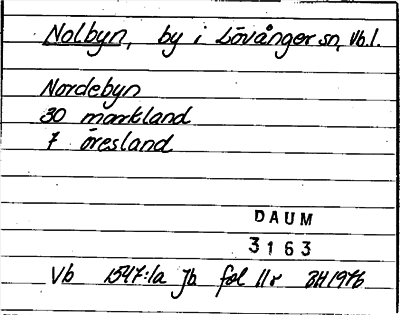 Nolbyn, by i Lövånger sn, Vb.l.
Nordebyn
30 markland
7 öresland
DAUM
3163
Vb 1547:1a Jb fol 11v BH 1976